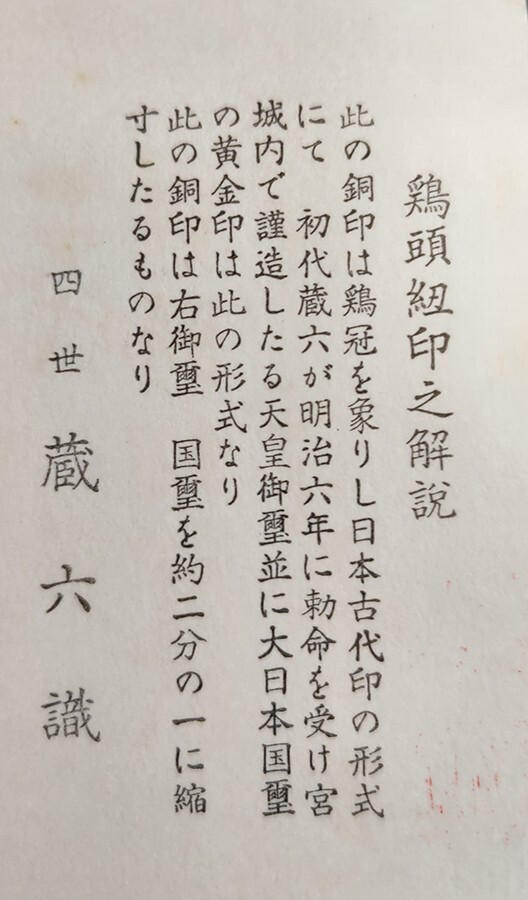 鶏頭紐印之解説
此の銅印は鶏冠を象りし日本古代印の形式
にて 初代蔵六が明治六年に勅命を受け宮
城内で謹造したる天皇御璽並に大日本国璽
の黄金印は此の形式なり
此の銅印は右御璽 国璽を約二分の一に縮
寸したるものなり
四世 蔵六識